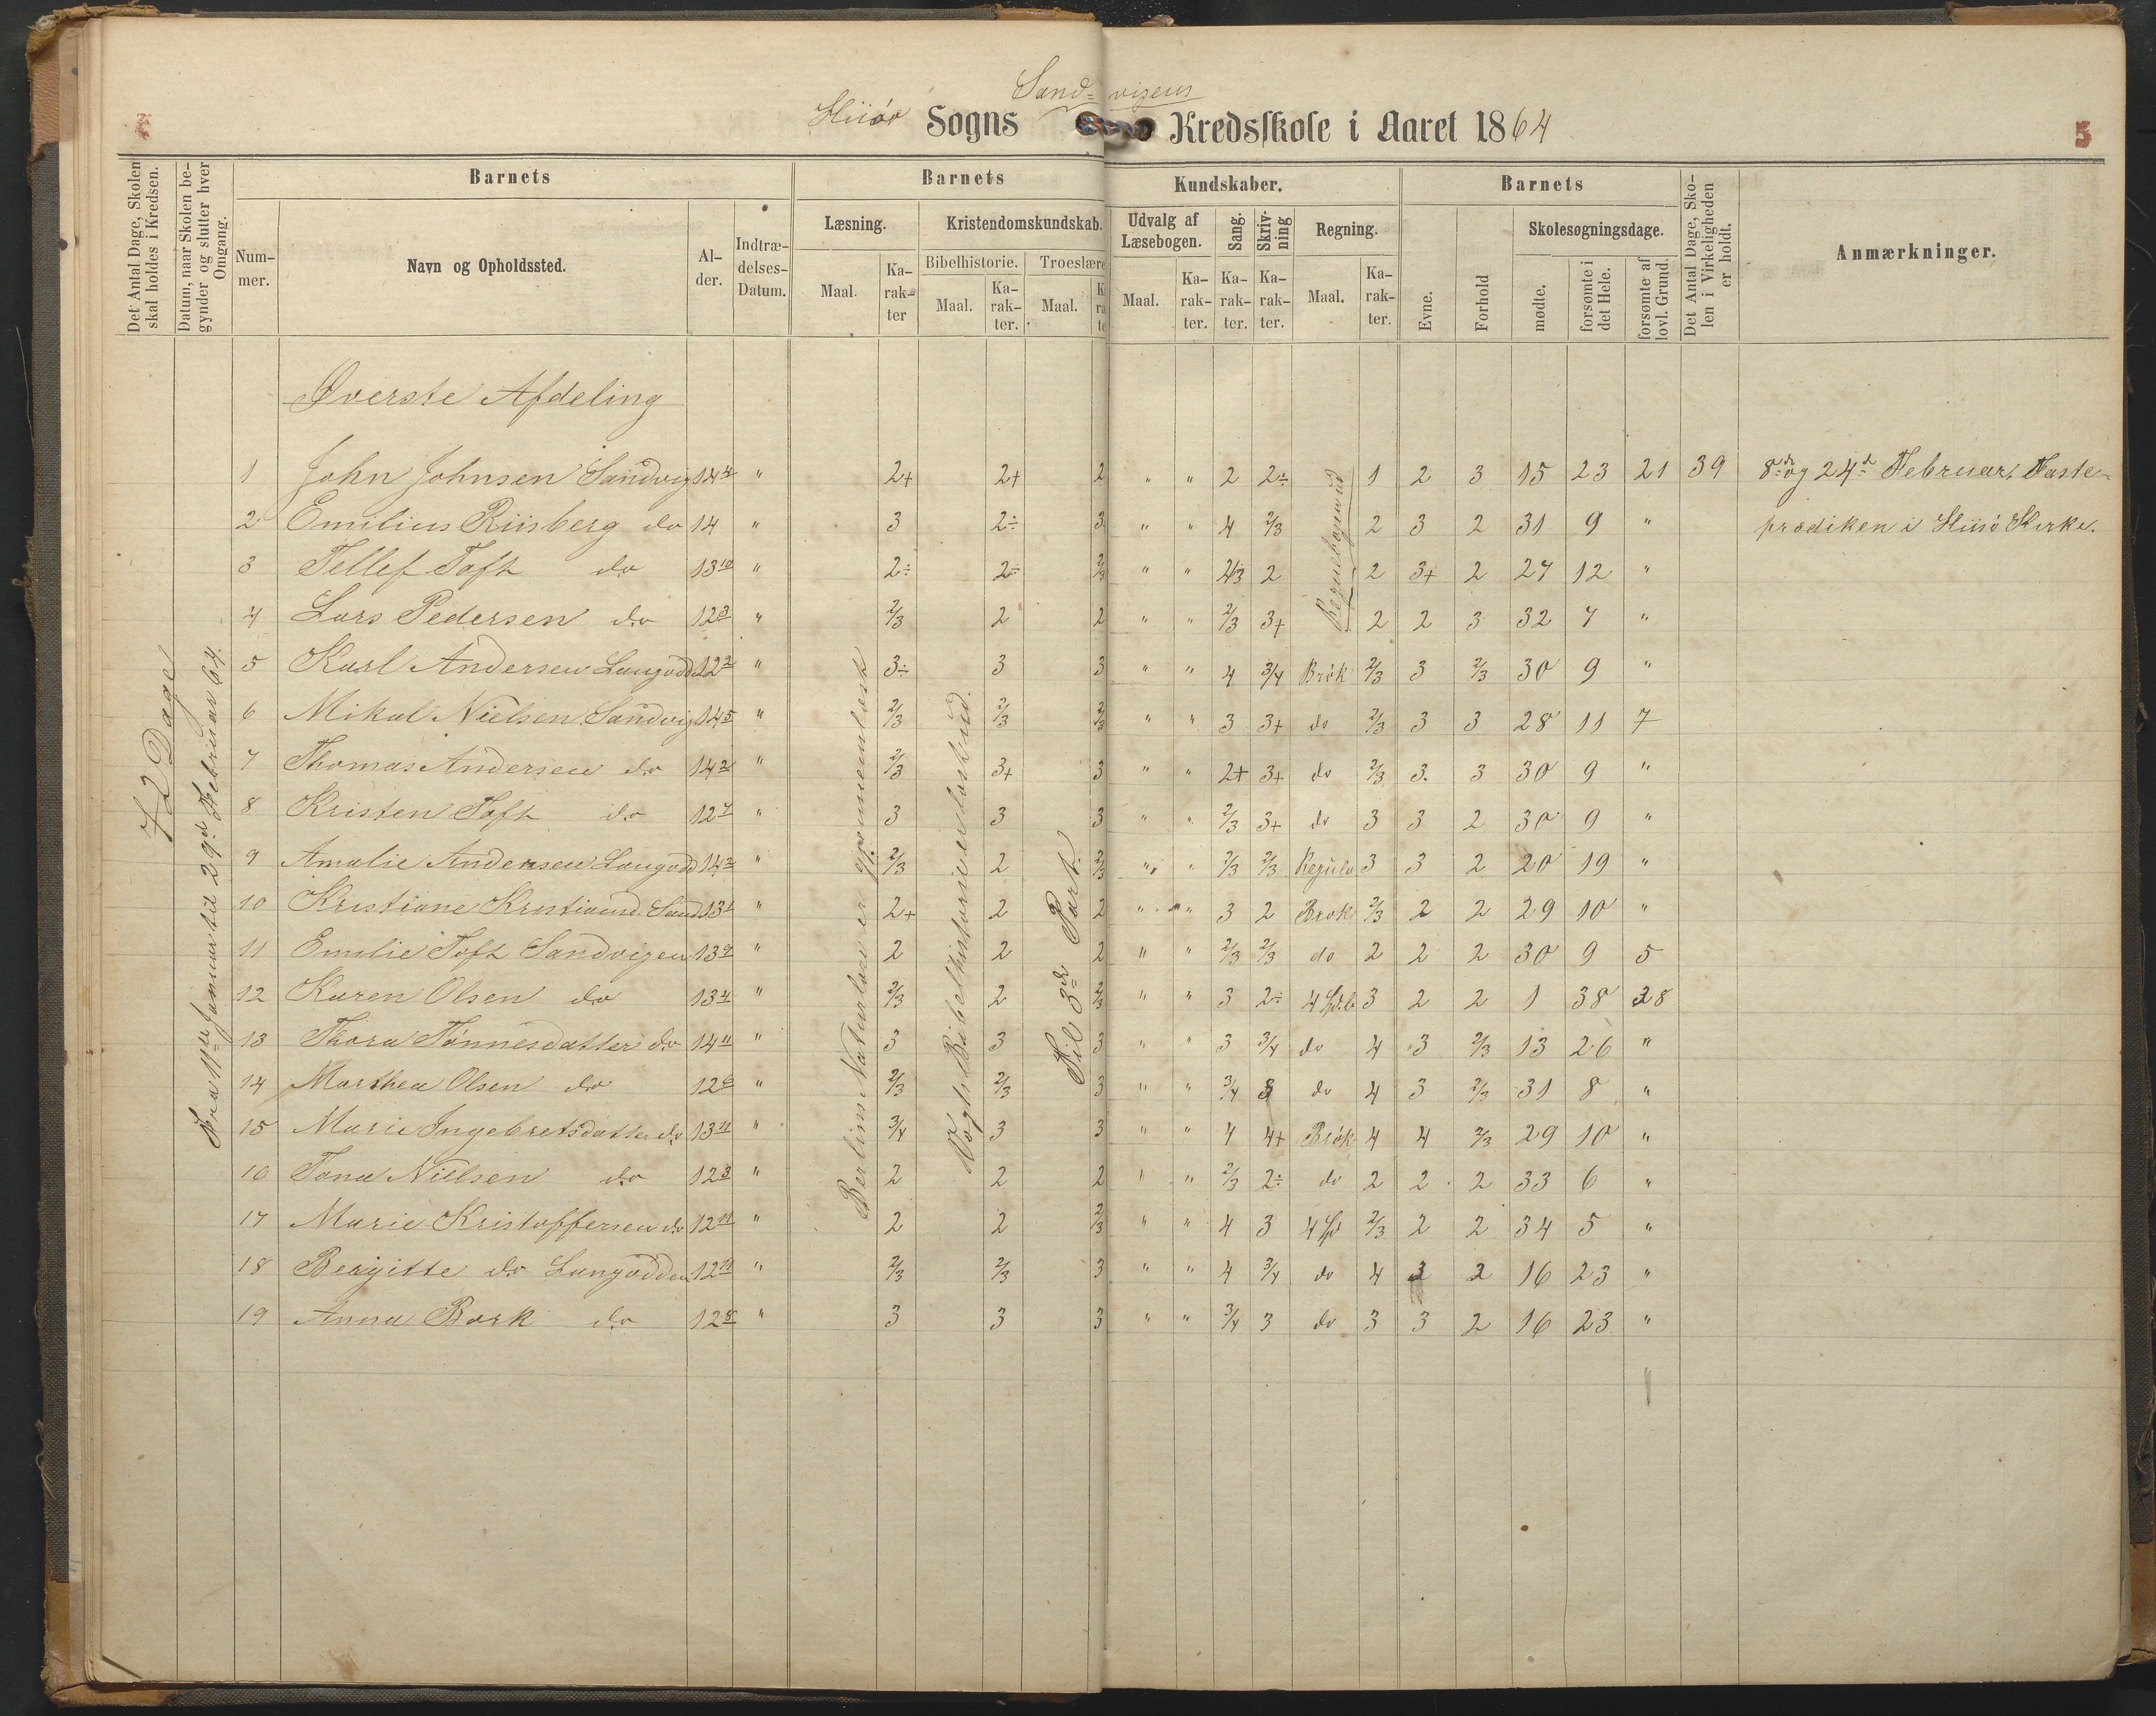 Sandvigens
Hiisø Sogns Kredsskole i Aaret 1864
5
Det Antal Dage, Skolen skal holdes i Kredsen.
Datum, naar Skolen begynder og slutter hver Omgang.
Barnets
Nummer.
Navn og Opholdssted.
Alder.
Indtrædelses-Datum.
Barnets Kundskaber.
Læsning.
Maal.
Karakter
Kristendomskundskab.
Bibelhistorie.
Maal.
Karakter.
Troeslære
Maal.
Udvalg af Læsebogen.
Maal.
Karakter.
Sang.
Karakter.
Skrivning
Karakter.
Regning.
Maal.
Karakter.
Barnets
Evne.
Forhold
Skolesøgningsdage.
mødte.
forsømte i det Hele.
forsømte af lovl. Grund.
Det Antal Dage, Skolen i Virkeligheden er holdt.
Anmærkninger.
72 Dage
Fra 11te Januar til 29de Februar 64.
Berlins Naturlære er gjennemlæst
Vogts Bibelhistorie er læst ud.
Til 3die Part.
Regnebogen ud
Øverste Afdeling
1 John Johnsen Sandvig 14 4 " 2+ 2+ 2 " " 2 2÷ 1 2 3 15 23 21 39 8de og 24de Februar, Faste-
2 Emilius Riisberg do 14 " 3 2÷ 3 " " 4 2/3 2 3 2 31 9 " prædiken i Hiisø Kirke.
3 Tellef Toft do 13 10 " 2÷ 2÷ 2/3 " " 2/3 2 2 3+ 2 27 12 "
4 Lars Pedersen do 12 3 " 2/3 2 2 " " 2/3 3+ 2 2 3 32 7 "
5 Karl Andersen Langodd 12 2 " 3÷ 3 3 " " 4 3/4 Brøk 2/3 3 2/3 30 9 "
6 Mikal Nielsen Sandvig 14 5 " 2/3 2/3 2/3 " " 3 3+ do 2/3 3 3 28 11 7
7 Thomas Andersen do 14 2 " 2/3 3+ 3 " " 2+ 3+ do 2/3 3. 3 30 9 "
8 Kristen Toft do 12 7 " 3 3 3 " " 2/3 3+ do 3 3 2 30 9 "
9 Amalie Andersen Langodd 14 2 " 2/3 2 2/3 " " 2/3 2/3 Regula 3 3 2 20 19 "
10 Kristiane Kristiansd. Sand 13 1 " 2+ 2 2 " " 3 2 Brøk 2/3 2 2 29 10 "
11 Emilie Toft Sandvigen 13 9 " 2 2 2 " " 2/3 2/3 do 2 2 2 30 9 5
12 Karen Olsen do 13 4 " 2/3 2 2/3 " " 3 2÷ 4 3 2 2 1 38 38
13 Thora Tønnesdatter do 14 11 " 3 3 3 " " 3 3/4 do 4 3 2/3 13 26 "
14 Marthea Olsen do 12 6 " 2/3 2/3 3 " " 3/4 3 do 4 3 2/3 31 8 "
15 Marie Ingebretsdatter do 13 11 " 3/4 3 3 " " 4 4+ Brøk 4 4 2/3 29 10 "
16 Tona Nielsen do 12 3 " 2 2 2 " " 2/3 2÷ do 2 2 2 33 6 "
17 Marie Kristoffersen do 12 11 " 2 2 2/3 " " 4 3 4 2/3 2 2 34 5 "
18 Bergitte do Langodden 12 11 " 2/3 2/3 3 " " 4 3/4 do 4 3 2 16 23 "
19 Anna Bork do 12 8 " 3 3 3 " " 3/4 3 do 3 3 2 16 23 "